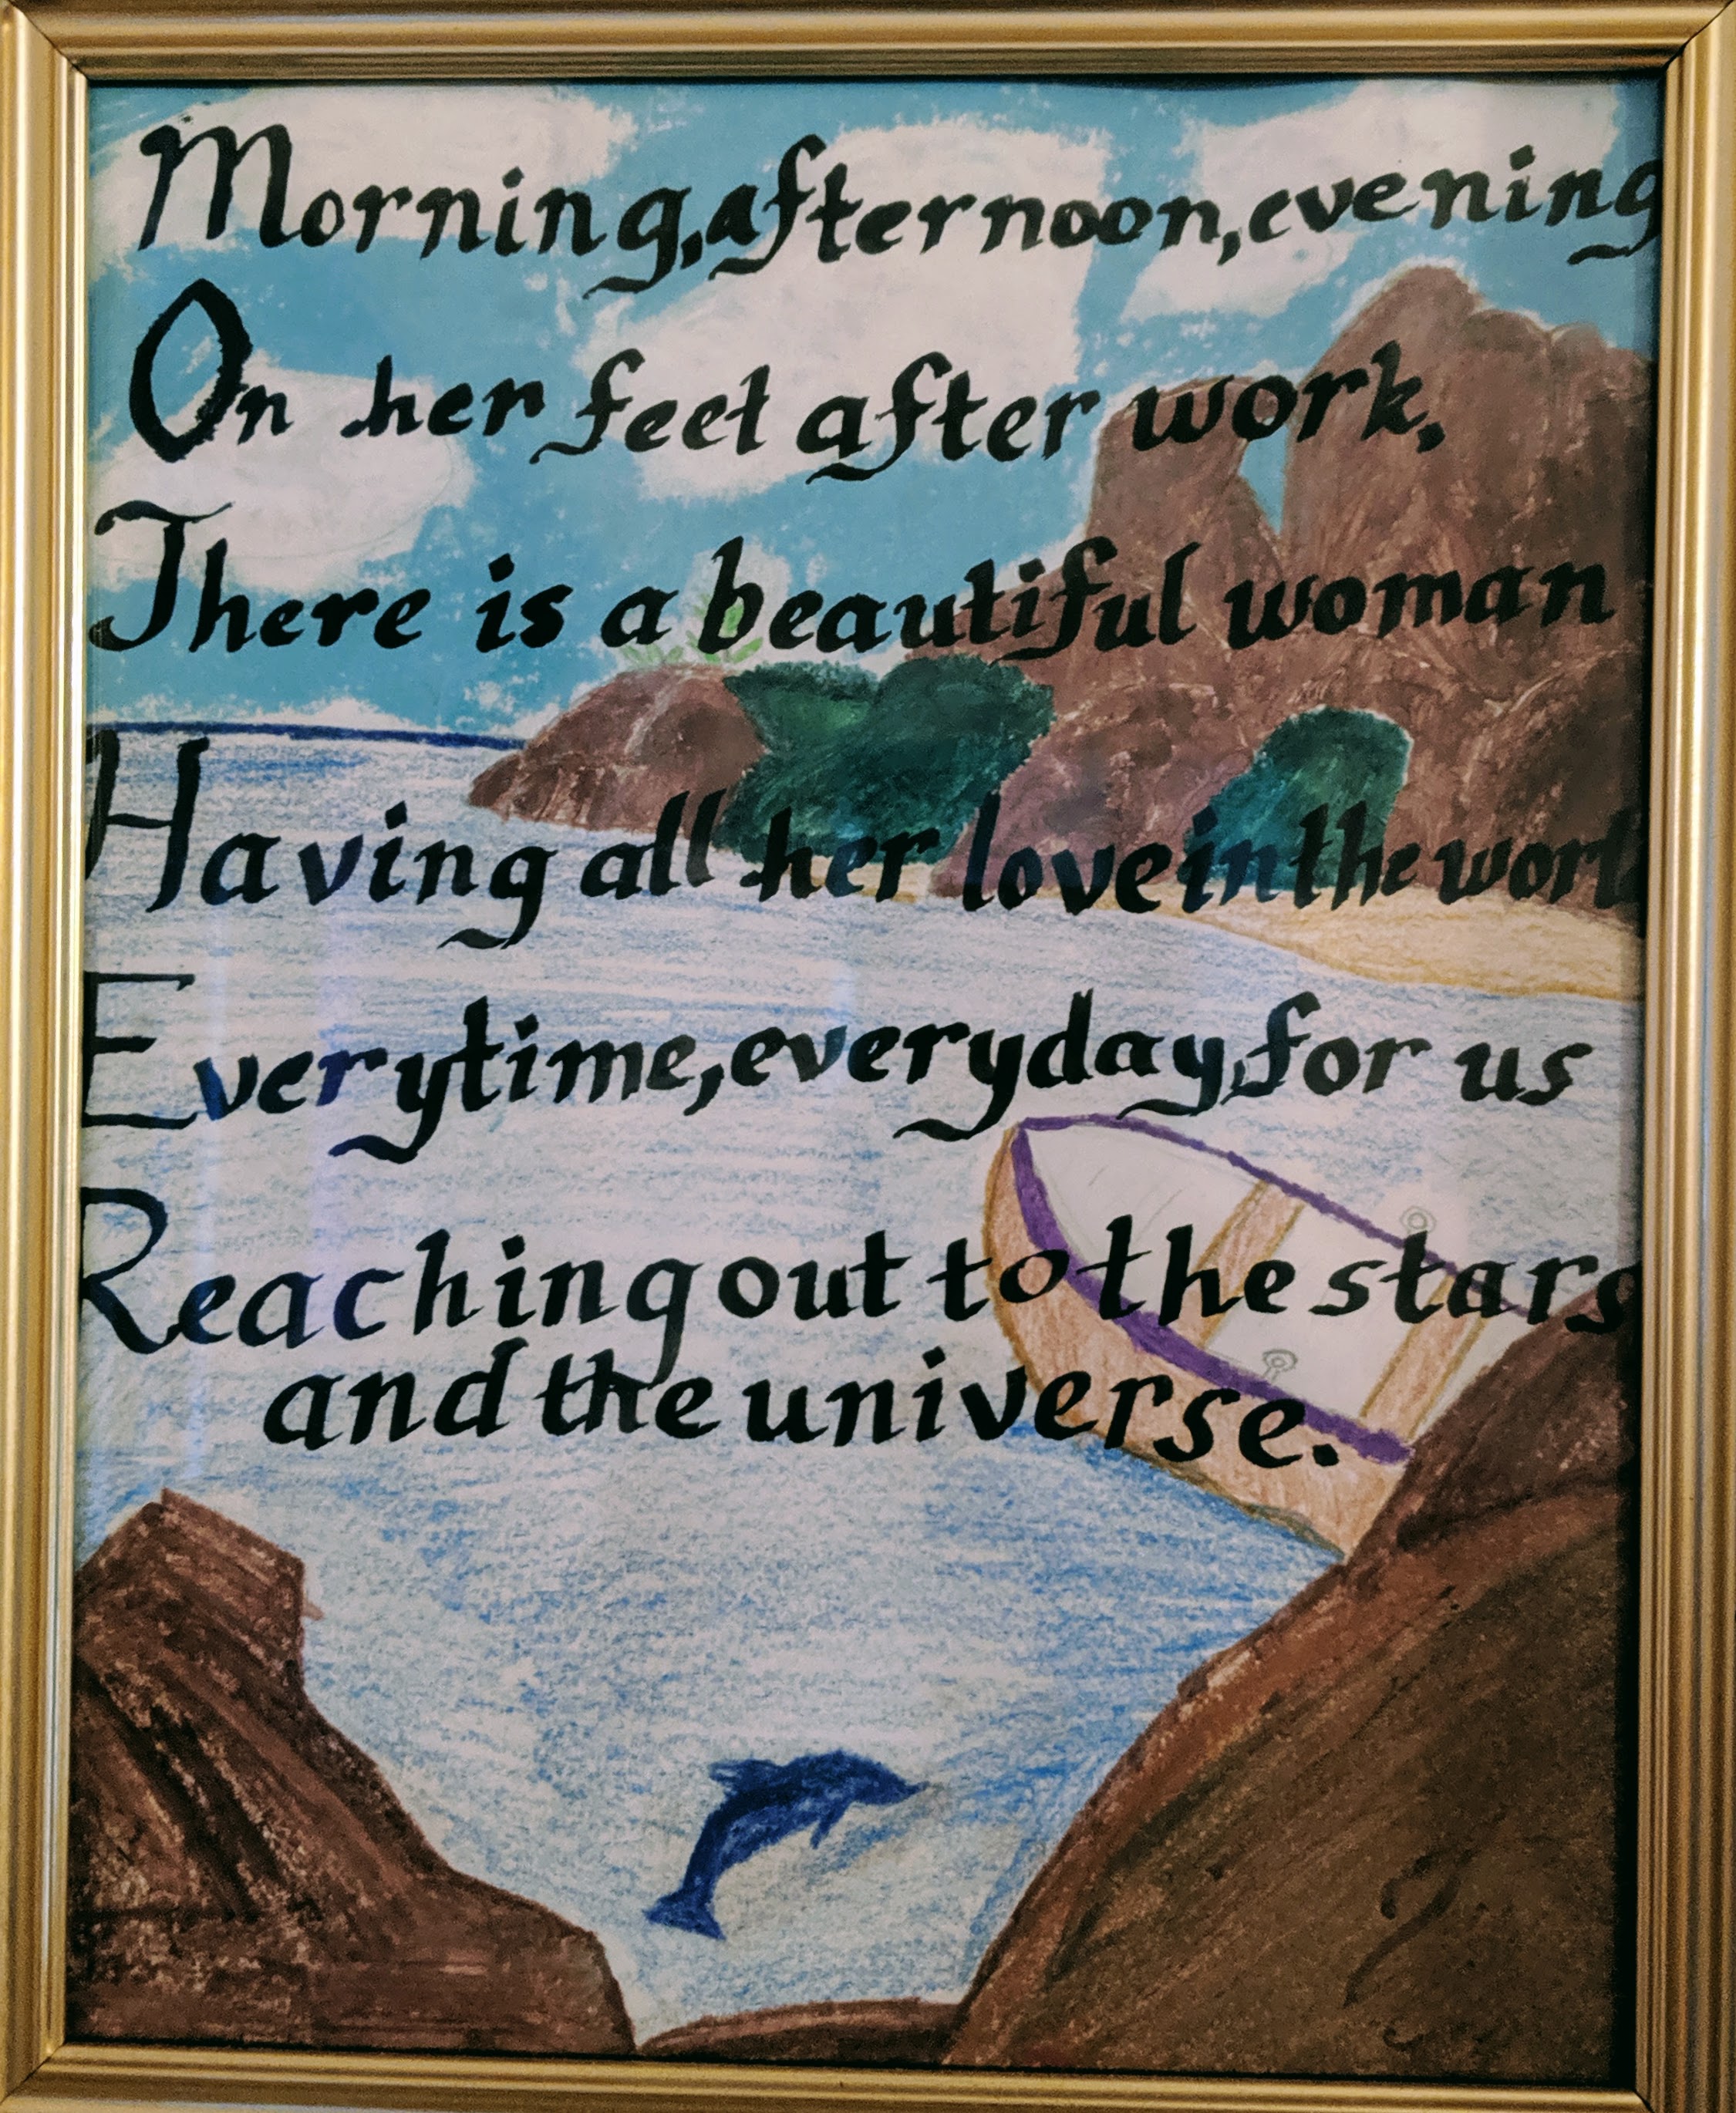 Morning, afternoon, evening
On her feet after work,
There is a beautiful woman
Having all her love in the worl
Everytime, everyday, for us
Reaching out to the stars
and the universe.